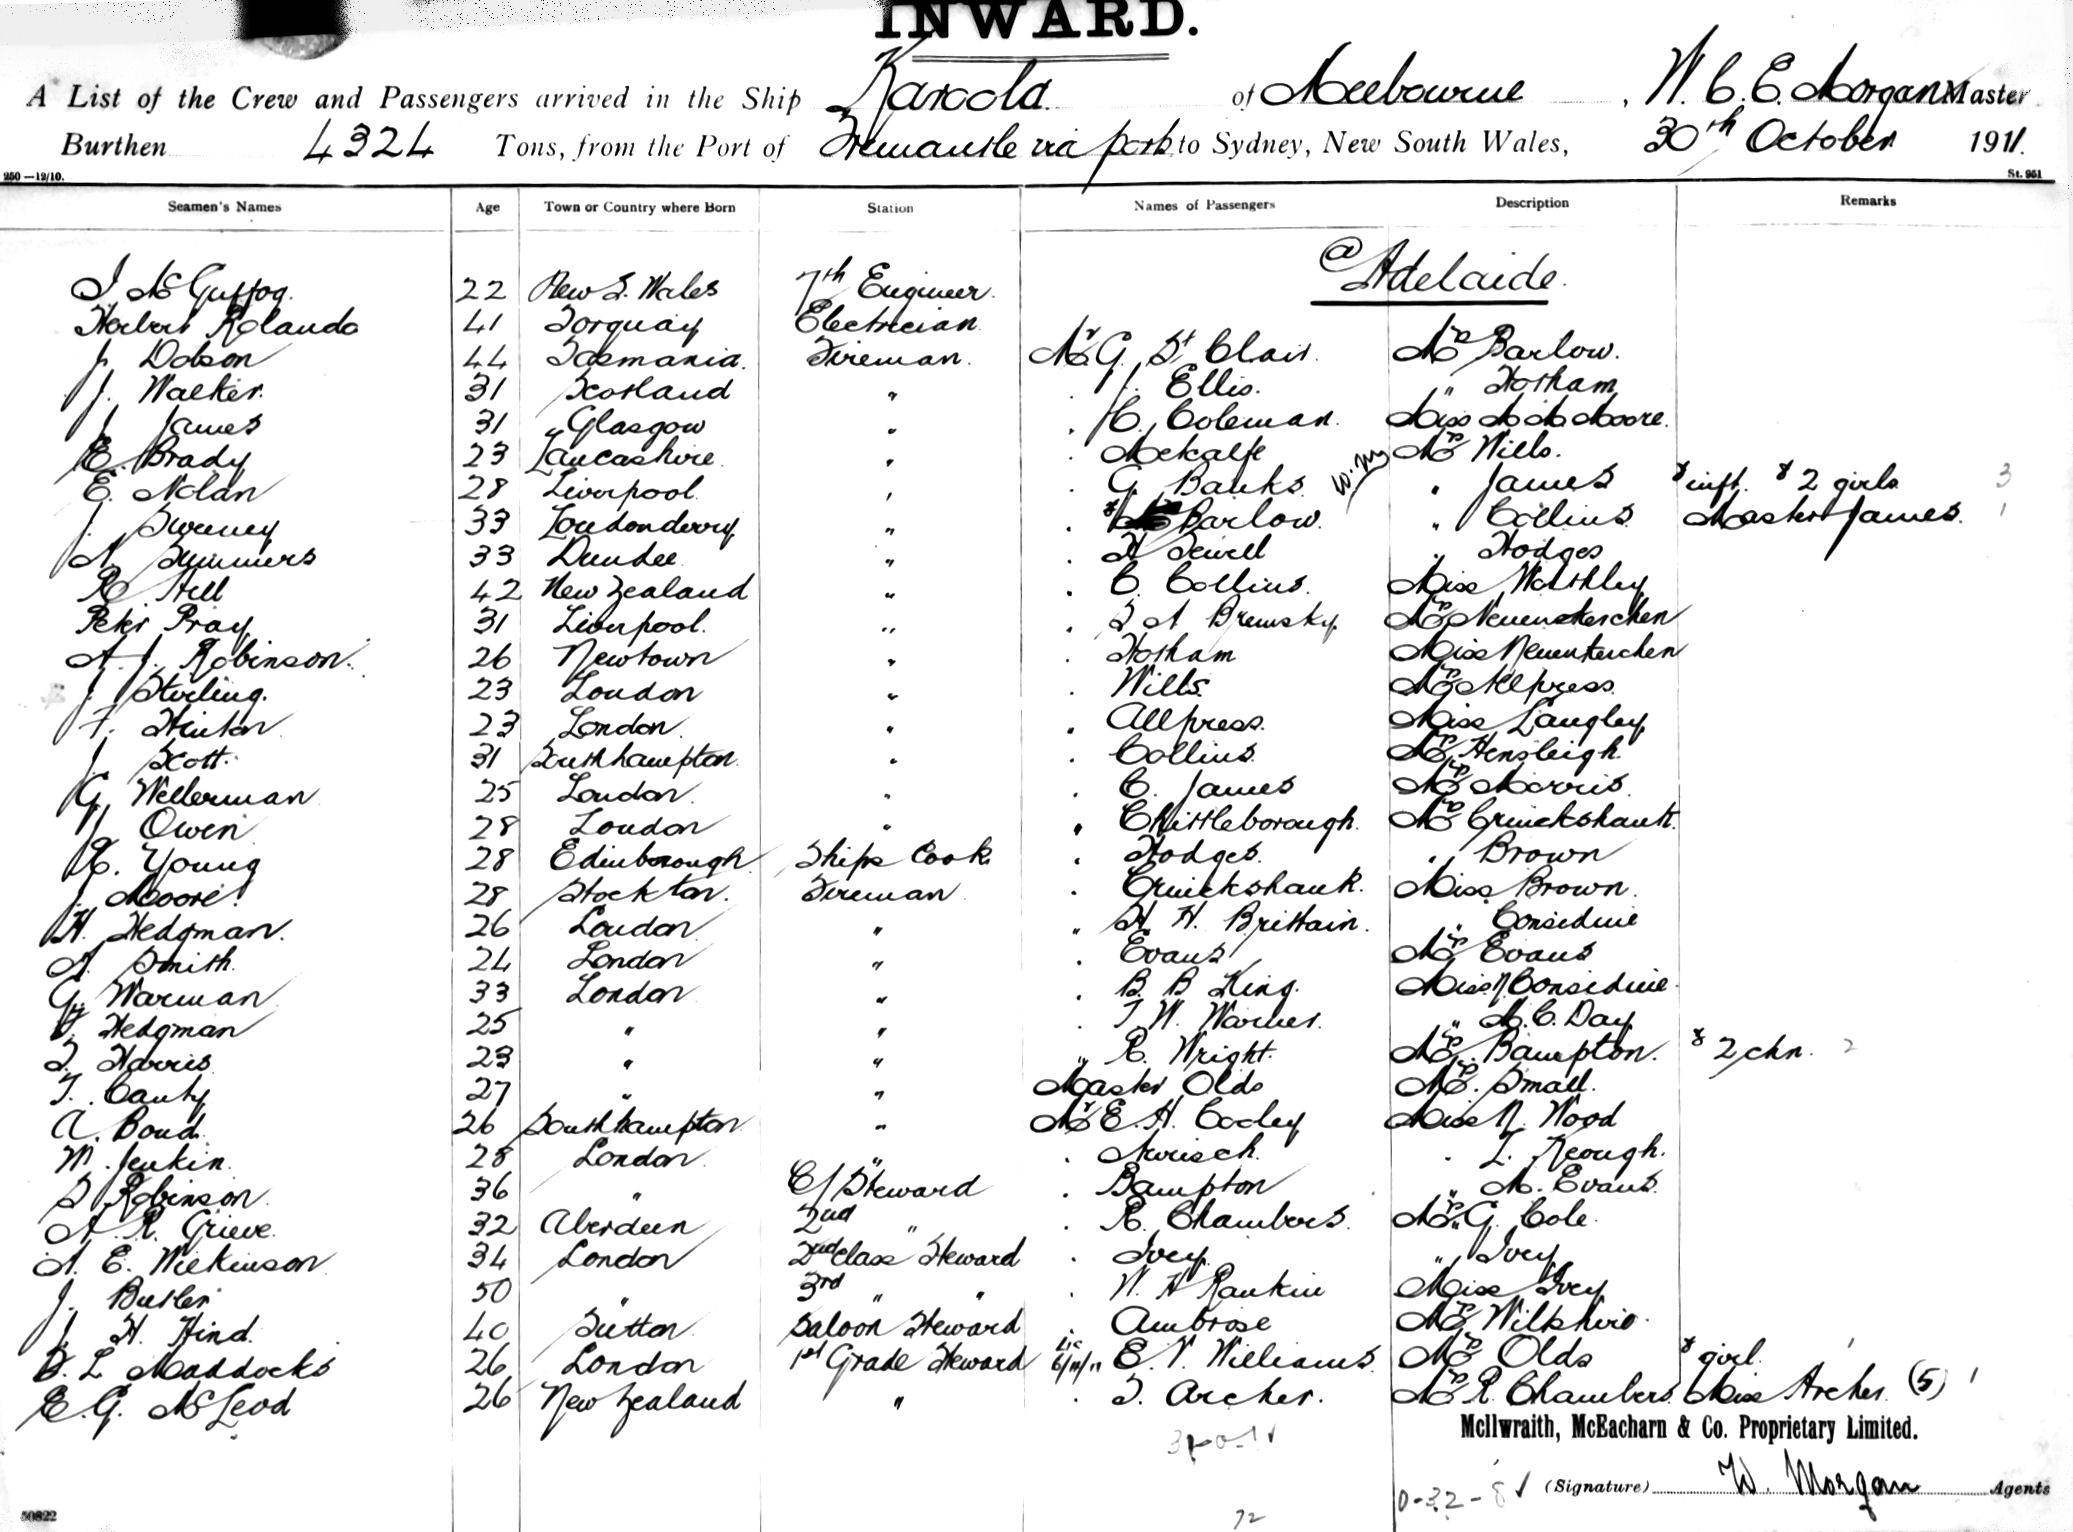 INWARD.
A List of the Crew and Passengers arrived in the Ship Karoola of Melbourne, W. C. E. Morgan Master
Burthen 4324 Tons, from the Port of Fremantle via ports to Sydney, New South Wales, 30th October 1911.
250—12/10. St. 951
Seamen's Names Age Town or Country where Born Station Names of Passengers Description Remarks
@ Adelaide.
J McGuffog. 22 New S. Wales 7th Engineer.
Herbert Rolando 41 Torquay Electrician
J. Dobson 44 Tasmania. Fireman. Mr G. St Clair. Mrs Barlow.
J. Walker. 31 Scotland " . J. Ellis. " Hotham
J James 31 Glasgow " . H. Coleman. Miss M. M. Moore.
E. Brady 23 Lancashire " . Metcalfe Mrs Wills.
E. Nolan 28 Liverpool " . G. Banks " James & inft. & 2 girls 3
J. Sweeney 33 Londonderry " . Barlow. " Collins Master James. 1
A Summers 33 Dundee " . H Sewell " Hodges
R Hill 42 New Zealand " . C. Collins. Miss Walthley
Peter Pray 31 Liverpool. " . S A Bremsky Mrs Neuenkerchen
A. J. Robinson. 26 Newtown " . Hotham Miss Neuenkerchen
J. Sterling. 23 London " . Wills Mrs Allpress
F. Hinton 23 London " . Allpress. Miss Langley
J. Scott. 31 Southampton. " . Collins. Mrs Hensleigh
G. Wellerman 25 London. " . C. James Mrs Morris
J. Owen 28 London " " Chittleborough. Mrs Cruickshank.
H. Young 28 Edinborough Ships Cook . Hodges. " Brown
J. Moore. 28 Stockton. Fireman . Cruickshank. Miss Brown.
H. Hedgman. 26 London " " H. H. Brittain. " Considine
A. Smith. 24 London " . Evans Mrs Evans
G. Warman 33 London " . B. B King. Miss N Considine
J. Hedgman 25 " " . T W. Warner. " M. C. Day
T. Harris 23 " " " R. Wright. Mrs. Bampton. & 2 chn. 2
T. Canty 27 " " Master Olds Mrs. Small.
A. Bond 26 Southampton " Mr E. H. Cooley Miss N. Wood
W. Jenkin. 28 London " . L. Keough.
S Robinson 36 " C/Steward . Bampton " M. Evans
A. R. Grieve 32 Aberdeen 2nd " . R. Chambers. Mrs. G. Cole
A. E. Wilkinson 34 London 2nd Class Steward . Ivey. " Ivey
J. Butler 50 " 3rd " " . W. H Rankin Miss Ivey
J. H. Hind. 40 Sutton Saloon Steward . Ambrose Mrs Wilkshire.
L Maddocks 26 London 1st Grade Steward 6/11/11 E. V. Williams. Mrs Olds & girl. 1
E. G. McLeod 26 New Zealand " . T. Archer. Mrs R. Chambers Miss Archer. (5) 1
McIlwraith, McEacharn & Co. Proprietary Limited.
(Signature) W. Morgan Agents
0-32-8 ✓
72
50822